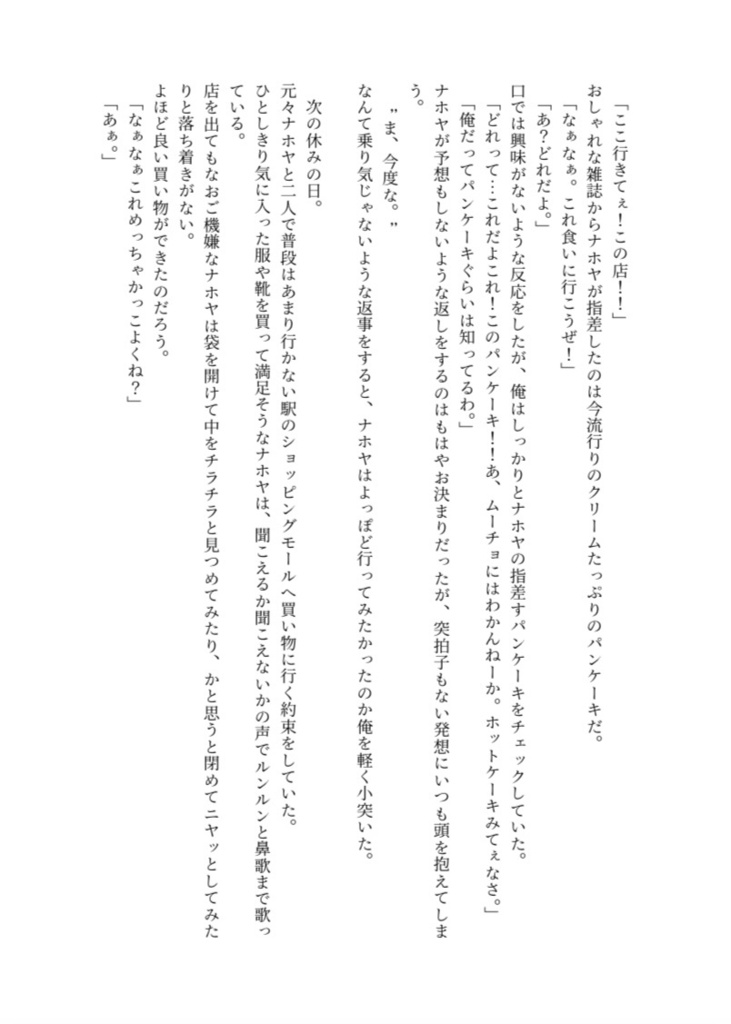 「ここ行きてぇ！この店！！」
おしゃれな雑誌からナホヤが指差したのは今流行りのクリームたっぷりのパンケーキだ。
「なぁなぁ。これ食いに行こうぜ！」
「あ？どれだよ。」
口では興味がないような反応をしたが、俺はしっかりとナホヤの指差すパンケーキをチェックしていた。
「どれって…これだよこれ！このパンケーキ！！あ、ムーチョにはわかんねーか。ホットケーキみてぇなさ。」
「俺だってパンケーキぐらいは知ってるわ。」
ナホヤが予想もしないような返しをするのはもはやお決まりだったが、突拍子もない発想にいつも頭を抱えてしま
う。
〝ま、今度な。〟
なんて乗り気じゃないような返事をすると、ナホヤはよっぽど行ってみたかったのか俺を軽く小突いた。
次の休みの日。
元々ナホヤと二人で普段はあまり行かない駅のショッピングモールへ買い物に行く約束をしていた。
ひとしきり気に入った服や靴を買って満足そうなナホヤは、聞こえるか聞こえないかの声でルンルンと鼻歌まで歌っ
ている。
店を出てもなおご機嫌なナホヤは袋を開けて中をチラチラと見つめてみたり、かと思うと閉めてニヤッとしてみた
りと落ち着きがない。
よほど良い買い物ができたのだろう。
「なぁなぁこれめっちゃかっこよくね？」
「あぁ。」